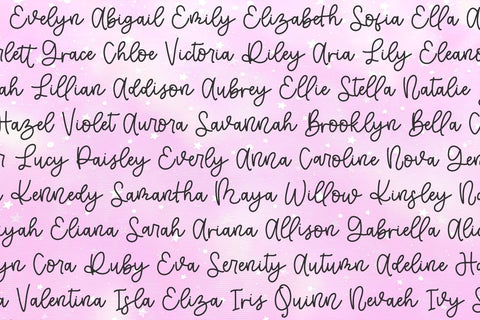 Evelyn Abigail Emily Elizabeth Sofia Ella A
rlett Grace Chloe Victoria Riley Aria Lily Eleano
ah Lillian Addison Aubrey Ellie Stella Natalie
Hazel Violet Aurora Savannah Brooklyn Bella C
r Lucy Paisley Everly Anna Caroline Nova Gen
Kennedy Samantha Maya Willow Kinsley Na
yah Eliana Sarah Ariana Allison Gabriella Alic
yn Cora Ruby Eva Serenity Autumn Adeline Ha
a Valentina Isla Eliza Iris Quinn Nevaeh Ivy S